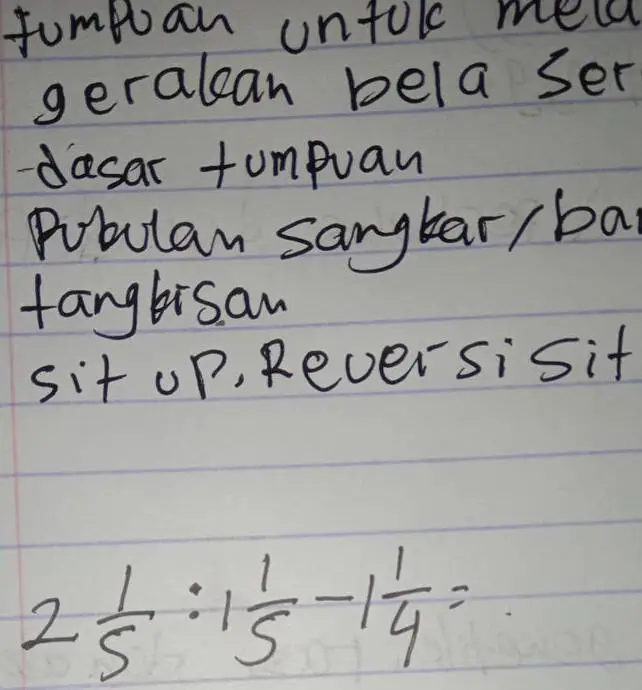 tumpuan untuk mela
gerakan bela ser
-dasar tumpuan
Pukulan sangkar/ban
tangkisan
sit up, Reversi sit
2 1/5 : 1 1/5 - 1 1/4 =